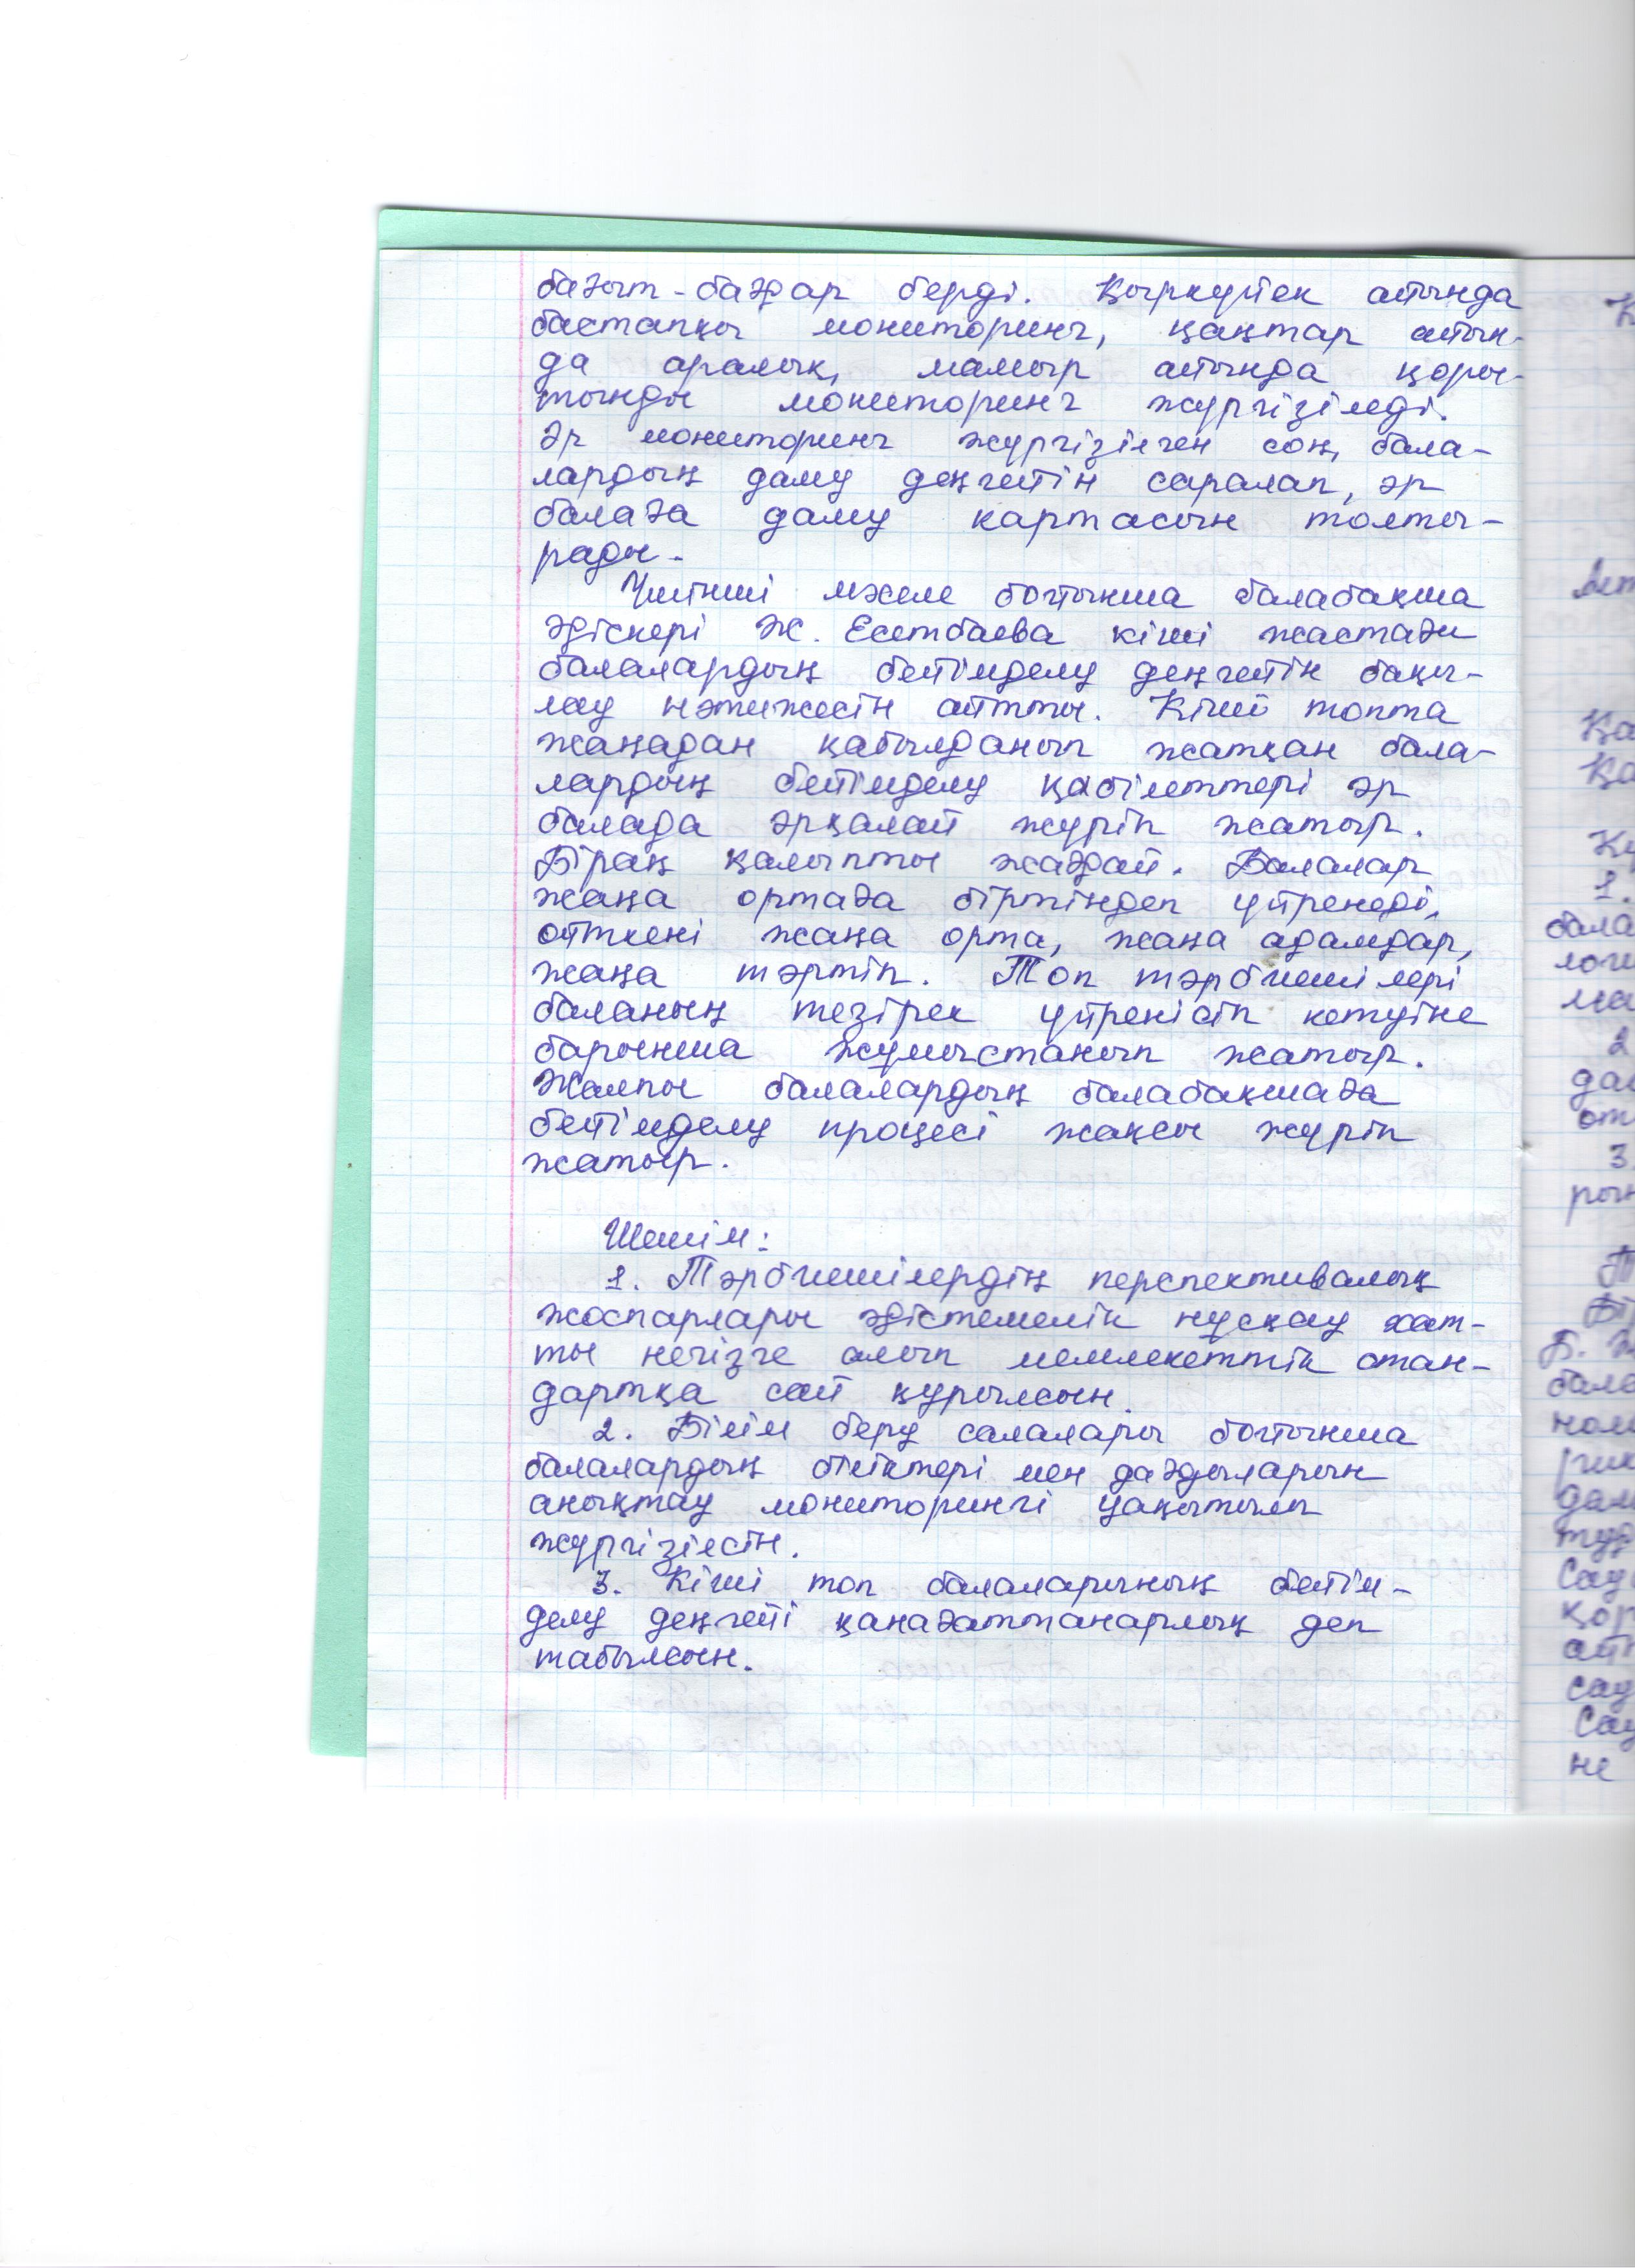 бағыт-бағдар берді. Қыркүйек айында
бастапқы мониторинг, қаңтар айын-
да аралық, мамыр айында қоры-
тынды мониторинг жүргізіледі.
Әр мониторинг жүргізілген соң, бала-
лардың даму деңгейін саралап, әр
балаға даму картасын толты-
рады.
Үшінші мәселе бойынша балабақша
әдіскері Ж. Есетбаева кіші жастағы
балалардың бейімделу деңгейін бақы-
лау нәтижесін айтты. Кіші топта
жаңадан қабылданып жатқан бала-
лардың бейімделу қабілеттері әр
балада әрқалай жүріп жатыр.
Бірақ қалыпты жағдай. Балалар
жаңа ортаға біртіндеп үйренеді,
өйткені жаңа орта, жаңа адамдар,
жаңа тәртіп. Топ тәрбиешілері
баланың тезірек үйренісіп кетуіне
барынша жұмыстанып жатыр.
Жалпы балалардың балабақшаға
бейімделу процесі жақсы жүріп
жатыр.
Шешім:
1. Тәрбиешілердің перспективалық
жоспарлары әдістемелік нұсқау хат-
ты негізге алып мемлекеттік стан-
дартқа сай құрылсын.
2. Білім беру салалары бойынша
балалардың біліктері мен дағдыларын
анықтау мониторингі уақытылы
жүргізілсін.
3. Кіші топ балаларының бейім-
делу деңгейі қанағаттанарлық деп
табылсын.